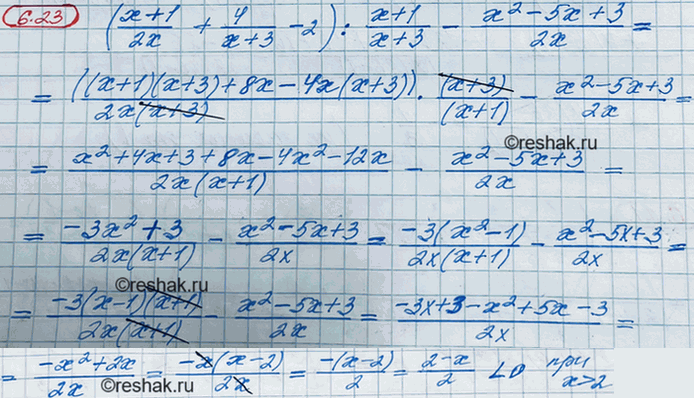 6.23 ((x+1)/(2x) + 4/(x+3) - 2) : (x+1)/(x+3) - (x²-5x+3)/(2x) =
= (((x+1)(x+3)+8x-4x(x+3)))/(2x(x+3)) · (x+3)/(x+1) - (x²-5x+3)/(2x) =
©reshak.ru
= (x²+4x+3+8x-4x²-12x)/(2x(x+1)) - (x²-5x+3)/(2x) =
= (-3x²+3)/(2x(x+1)) - (x²-5x+3)/(2x) = (-3(x²-1))/(2x(x+1)) - (x²-5x+3)/(2x) =
©reshak.ru
= (-3(x-1)(x+1))/(2x(x+1)) - (x²-5x+3)/(2x) = (-3x+3-x²+5x-3)/(2x) =
= (-x²+2x)/(2x) = (-x(x-2))/(2x) = (-(x-2))/2 = (2-x)/2 <0 при x>2